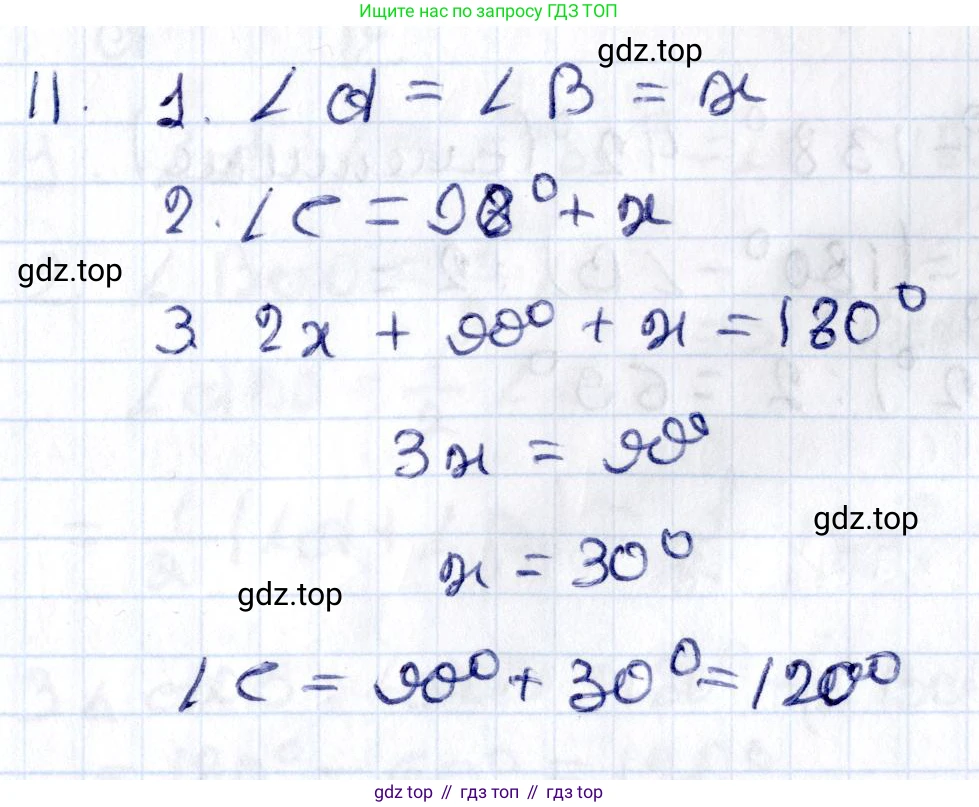 Ищите нас по запросу ГДЗ ТОП
gdz.top
11. 1. ∠α = ∠β = x
2. ∠C = 90° + x
gdz.top
3. 2x + 90° + x = 180°
3x = 90°
gdz.top
x = 30°
gdz.top
∠C = 90° + 30° = 120°
gdz top // гдз топ // гдз top